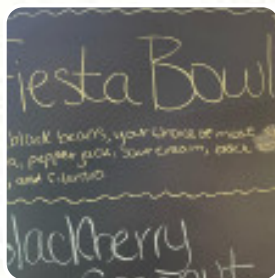 Fiesta Bowl
black beans, your choice of meat
pepper jack, sour cream,
, and cilantro
blackberry